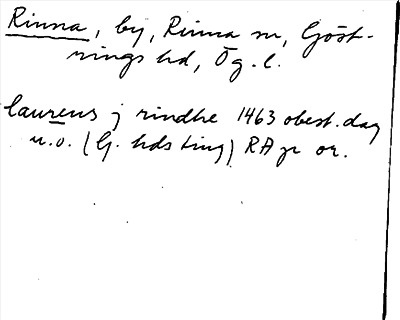 Rinna, by, Rinna sn, Göst-
rings hd, Ög. l.
laurens j rindhe 1463 obest. dag
u.o. (G. hds ting) RA p or.